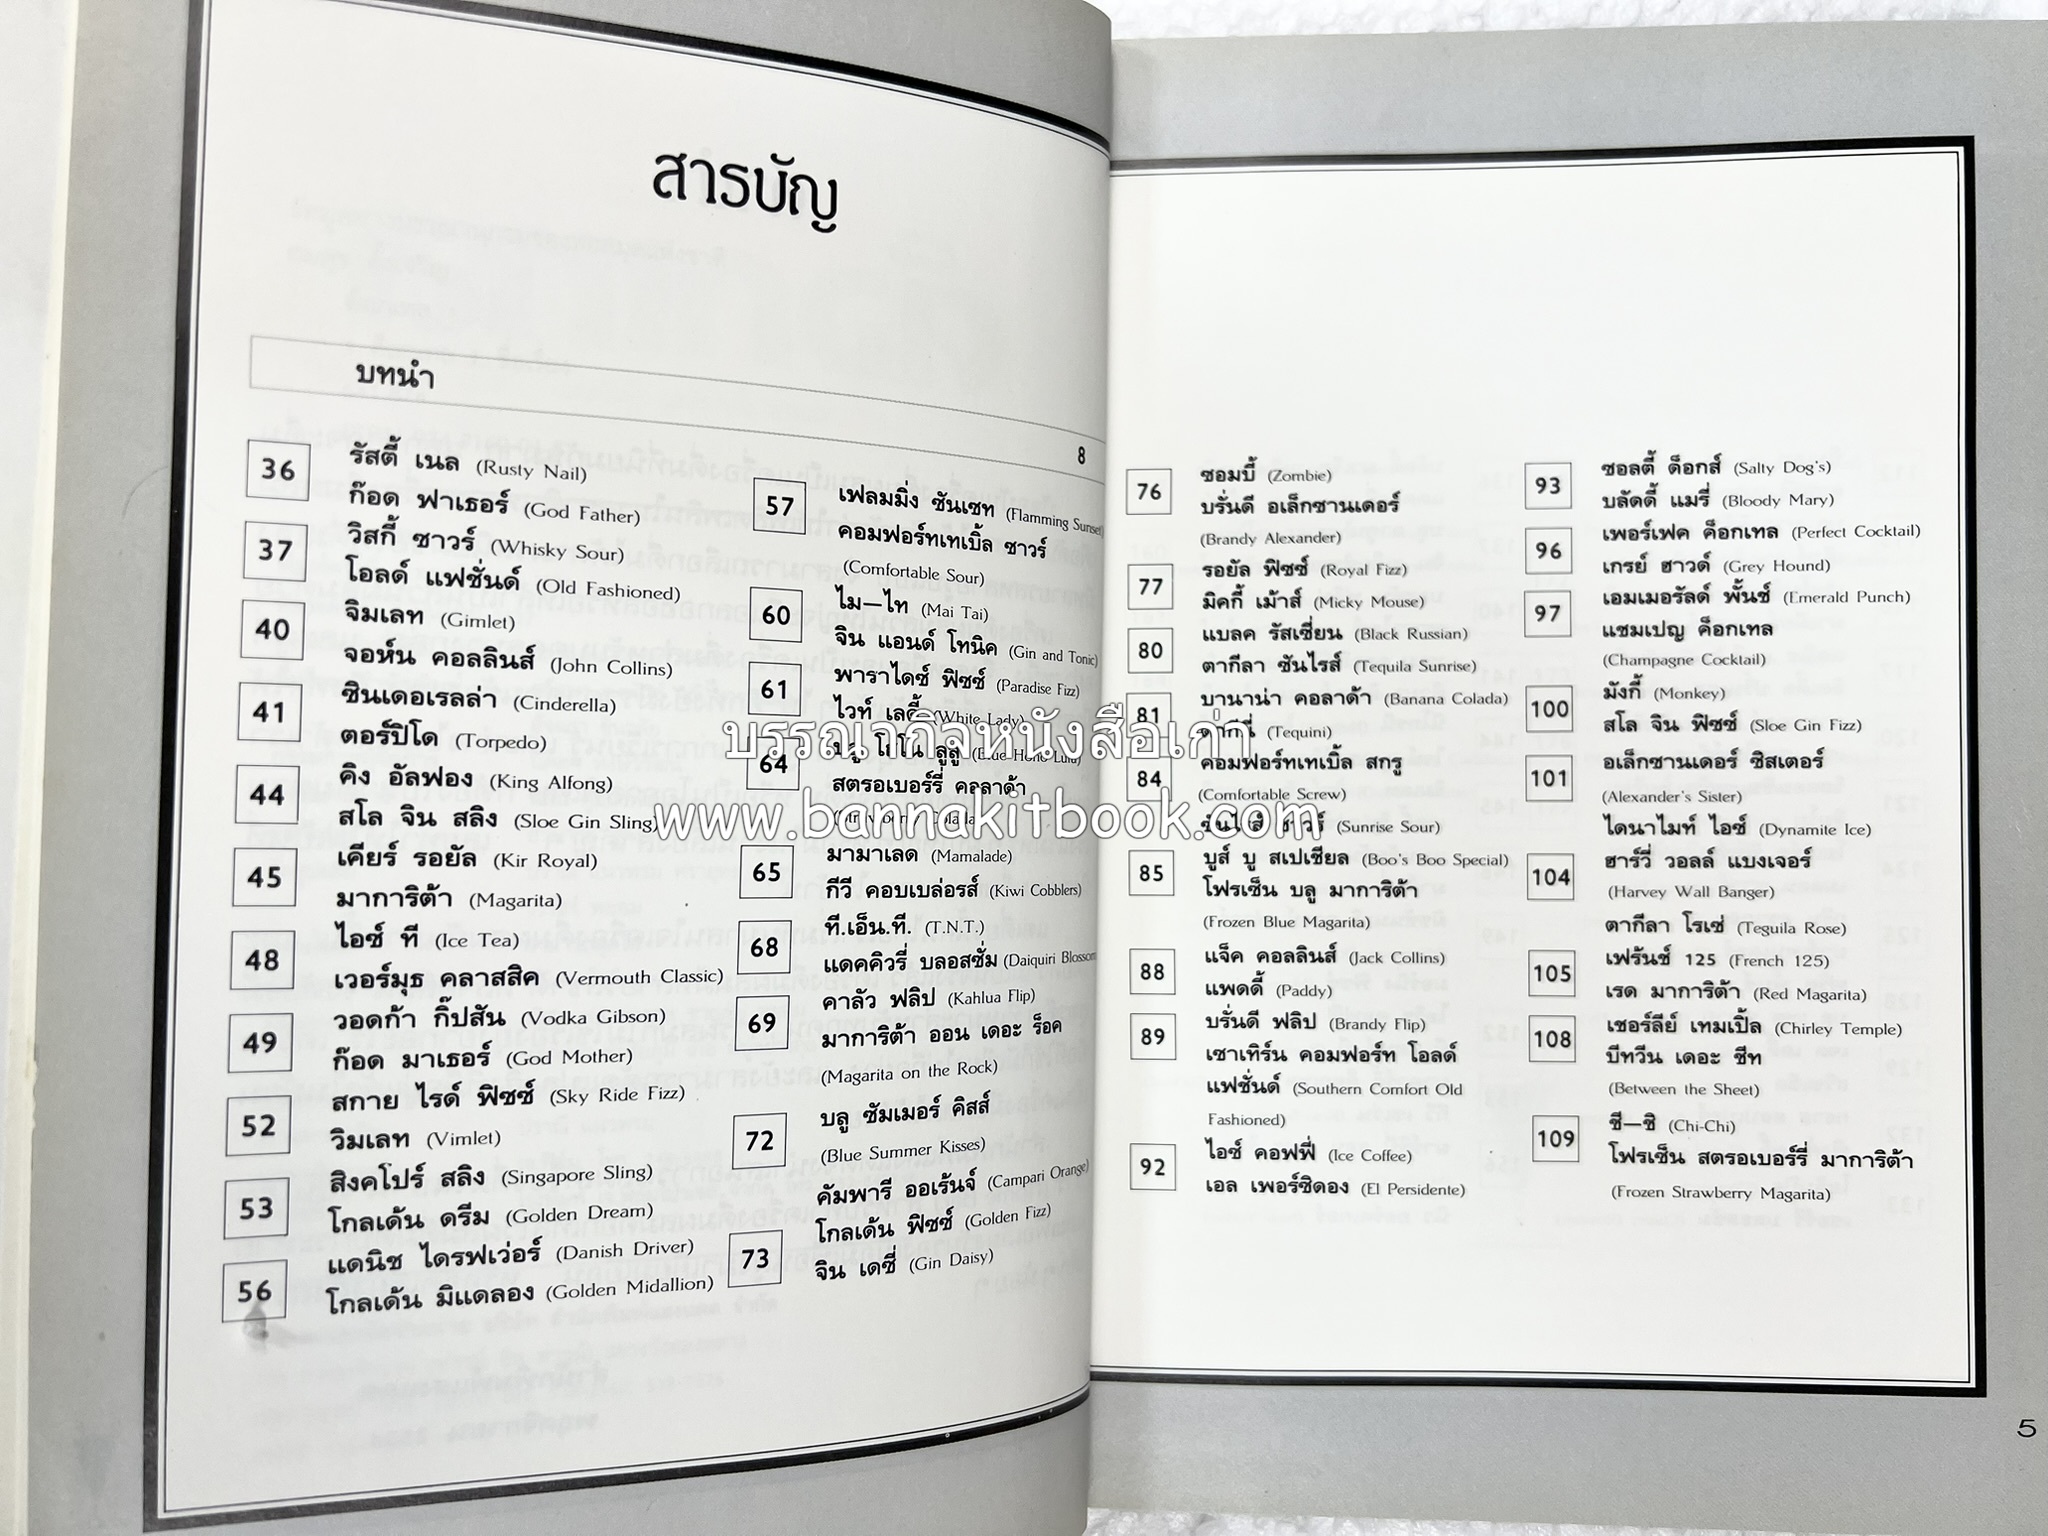 สารบัญ
บทนำ
8
36
รัสตี้ เนล (Rusty Nail)
ก๊อด ฟาเธอร์ (God Father)
37
วิสกี้ ซาวร์ (Whisky Sour)
โอลด์ แฟชั่นด์ (Old Fashioned)
40
จิมเลท (Gimlet)
จอห์น คอลลินส์ (John Collins)
41
ซินเดอเรลล่า (Cinderella)
ตอร์ปิโด (Torpedo)
44
คิง อัลฟอง (King Alfong)
สโล จิน สลิง (Sloe Gin Sling)
45
เคียร์ รอยัล (Kir Royal)
มาการิต้า (Magarita)
48
ไอซ์ ที (Ice Tea)
เวอร์มุธ คลาสสิค (Vermouth Classic)
49
วอดก้า กิ๊ปสัน (Vodka Gibson)
ก๊อด มาเธอร์ (God Mother)
52
สกาย ไรด์ ฟิซซ์ (Sky Ride Fizz)
วิมเลท (Vimlet)
53
สิงคโปร์ สลิง (Singapore Sling)
โกลเด้น ดรีม (Golden Dream)
56
แดนิช ไดรฟเว่อร์ (Danish Driver)
โกลเด้น มิแดลอง (Golden Midallion)
57
เฟลมมิ่ง ซันเซท (Flamming Sunset)
คอมฟอร์ทเทเบิ้ล ซาวร์
(Comfortable Sour)
60
ไม—ไท (Mai Tai)
จิน แอนด์ โทนิค (Gin and Tonic)
61
พาราไดซ์ ฟิซซ์ (Paradise Fizz)
ไวท์ เลดี้ (White Lady)
64
สตรอเบอร์รี่ คอลาด้า
65
มามาเลด (Mamalade)
กีวี คอบเบล่อรส์ (Kiwi Cobblers)
68
ที.เอ็น.ที. (T.N.T.)
แดคคิวรี่ บลอสซั่ม (Daiquiri Blossom
69
คาลัว ฟลิป (Kahlua Flip)
มาการิต้า ออน เดอะ ร็อค
(Magarita on the Rock)
72
บลู ซัมเมอร์ คิสส์
(Blue Summer Kisses)
คัมพารี ออเร้นจ์ (Campari Orange)
73
โกลเด้น ฟิซซ์ (Golden Fizz)
จิน เดซี่ (Gin Daisy)
76
ซอมบี้ (Zombie)
บรั่นดี อเล็กซานเดอร์
(Brandy Alexander)
77
รอยัล ฟิซซ์ (Royal Fizz)
มิคกี้ เม้าส์ (Micky Mouse)
80
แบลค รัสเซี่ยน (Black Russian)
ตากีลา ซันไรส์ (Tequila Sunrise)
81
บานาน่า คอลาด้า (Banana Colada)
(Tequini)
84
คอมฟอร์ทเทเบิ้ล สกรู
(Comfortable Screw)
(Sunrise Sour)
85
บูส์ บู สเปเชียล (Boo's Boo Special)
โฟรเซ็น บลู มาการิต้า
(Frozen Blue Magarita)
88
แจ็ค คอลลินส์ (Jack Collins)
แพดดี้ (Paddy)
89
บรั่นดี ฟลิป (Brandy Flip)
เซาเทิร์น คอมฟอร์ท โอลด์
แฟชั่นด์ (Southern Comfort Old
Fashioned)
92
ไอซ์ คอฟฟี่ (Ice Coffee)
เอล เพอร์ซิดอง (El Persidente)
93
ซอลตี้ ด็อกส์ (Salty Dog's)
บลัดดี้ แมรี่ (Bloody Mary)
96
เพอร์เฟค ค็อกเทล (Perfect Cocktail)
เกรย์ ฮาวด์ (Grey Hound)
97
เอมเมอรัลด์ พั้นช์ (Emerald Punch)
แชมเปญ ค็อกเทล
(Champagne Cocktail)
100
มังกี้ (Monkey)
สโล จิน ฟิซซ์ (Sloe Gin Fizz)
101
อเล็กซานเดอร์ ซิสเตอร์
(Alexander's Sister)
ไดนาไมท์ ไอซ์ (Dynamite Ice)
104
ฮาร์วี่ วอลล์ แบงเจอร์
(Harvey Wall Banger)
ตากีลา โรเซ่ (Teguila Rose)
105
เฟรันช์ 125 (French 125)
เรด มาการิต้า (Red Magarita)
108
เชอร์ลีย์ เทมเปิ้ล (Chirley Temple)
บีทวีน เดอะ ชีท
(Between the Sheet)
109
ชี—ชิ (Chi-Chi)
โฟรเซ็น สตรอเบอร์รี่ มาการิต้า
(Frozen Strawberry Magarita)
5
บรรณากิจหนังสือเก่า
www.bannakitbook.com